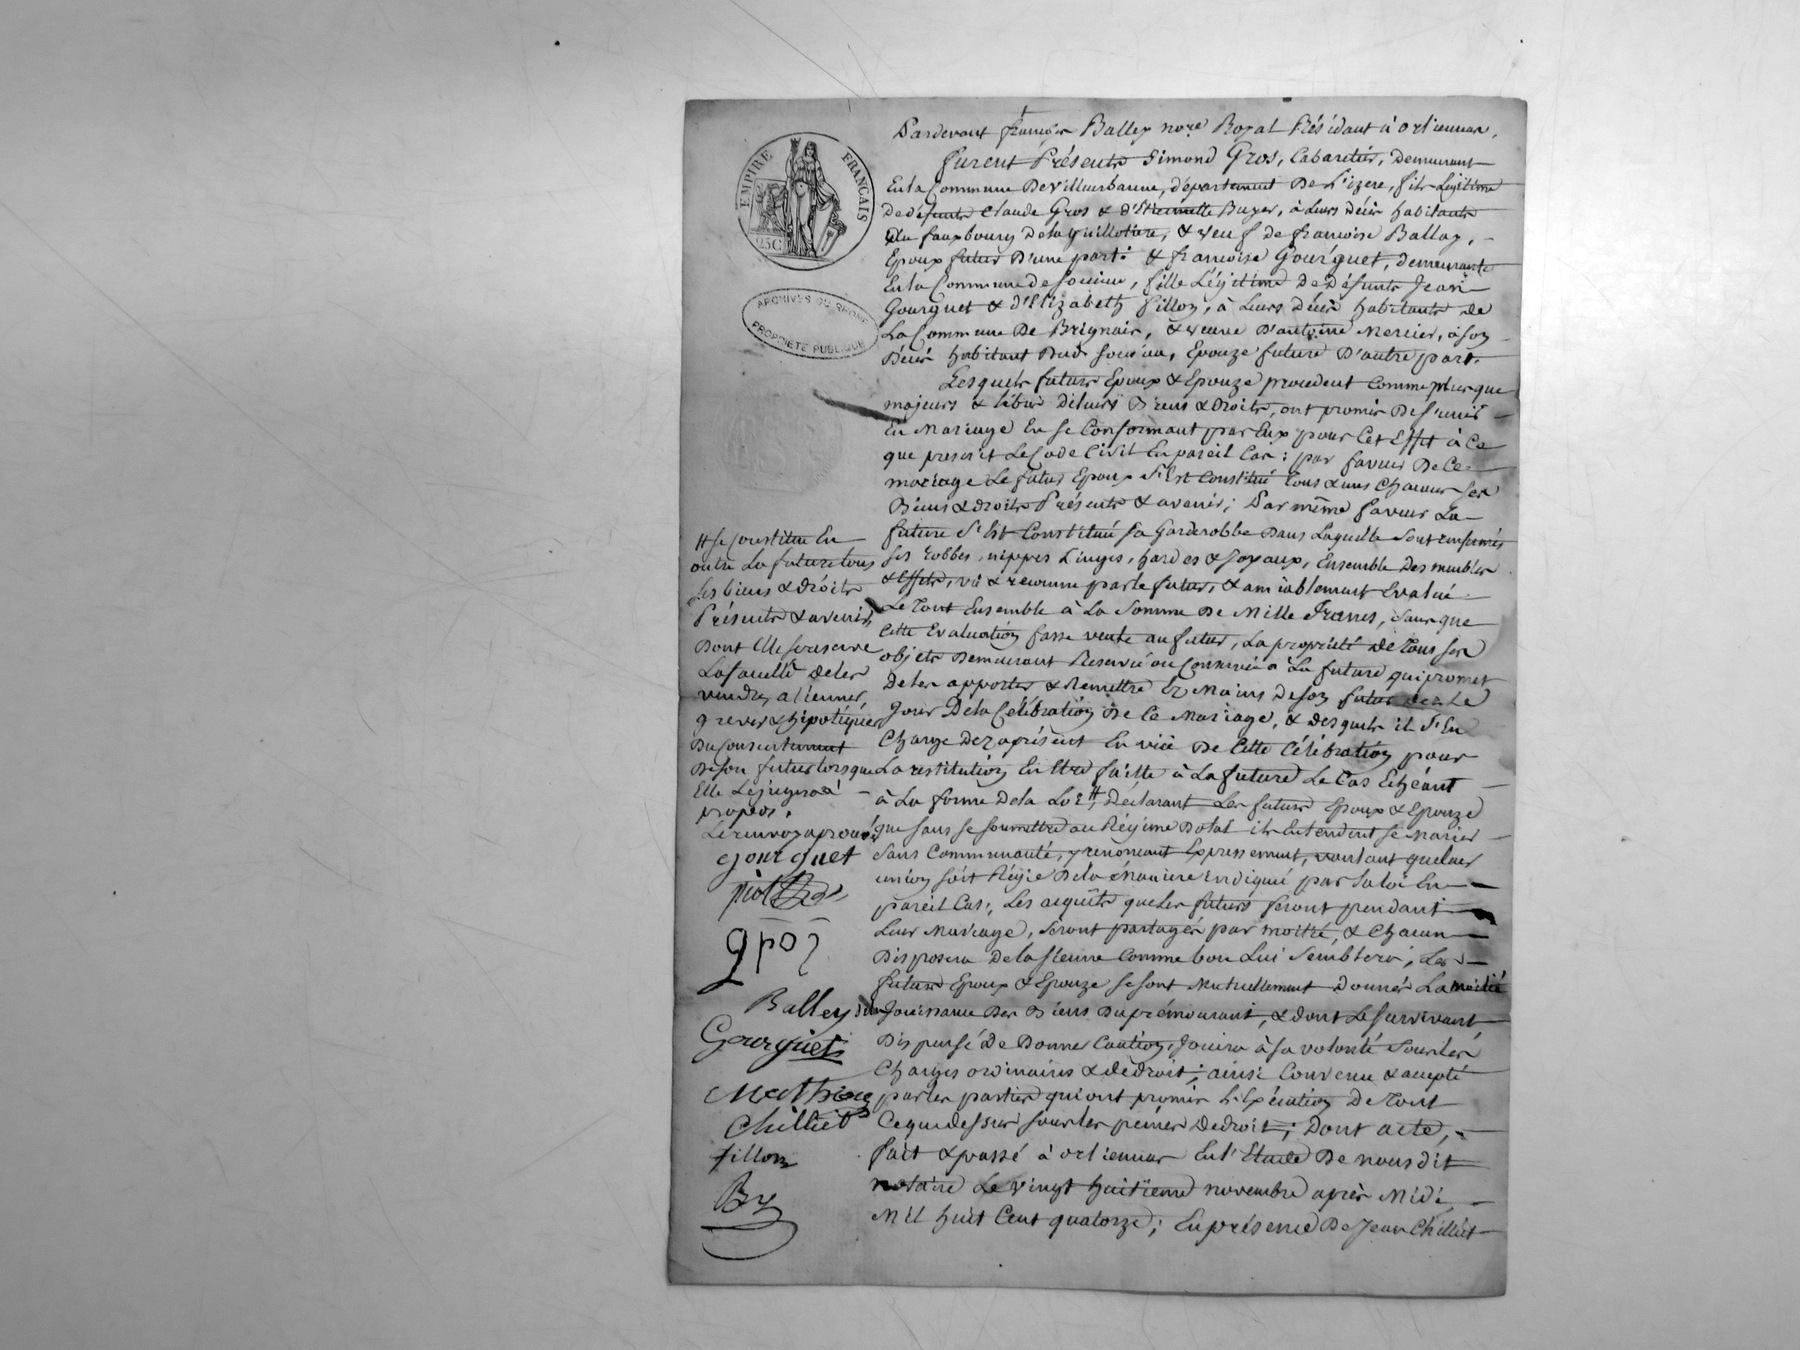 EMPIRE FRANÇAIS
25C
ARCHIVES DU RHONE
PROPRIETE PUBLIQUE
Pardevant françois Balley no.re Royal Résidant à orliennas,
furent Présents Simond Gros, Cabaretier, Demeurant
En la Commune De Villeurbanne, département De L'izere, fils Légitime
De défunts Claude Gros & d'Etiennette Buyer, à Leurs décès habitants
Du fauxbourg De la guillotiere, & veuf de francoise Ballay,
Epoux futur D'une part; & francoise Gourguet, demeurante
En la Commune De Soucieu, fille Légitime De Défunts Jean
Gourguet & d'Elizabeth fillon, à Leurs décès habitants de
La Commune De Brignais, & veuve D'antoine Mercier, à son
Décès habitant Dud. Soucieu, Epouze future D'autre part.
Lesquels futurs Epoux & Epouze procedent Comme plus que
majeurs & libres de leurs Biens & Droits, ont promis De s'unir
En Mariage En se Conformant par Eux pour Cet Effet à Ce
que prescrit Le Code Civil En pareil Cas; par faveur De Ce
mariage Le futur Epoux s'Est Constitué tous & uns Chacuns ses
Biens & droits Présents & avenir; Par même faveur La
future s'Est Constitué sa Garderobbe Dans Laquelle sont renfermés
ses robbes, nippes Linges, hardes & Joyaux, Ensemble Des meubles
& Effets, vu & reconnu par le futur, & amiablement Evalué
Le Tout Ensemble à La Somme De Mille francs, sans que
Cette Evaluation fasse vente au futur, La propriété de Tous ses
objets Demeurant Reservé ou Conservée à La future qui promet
De les apporter & Remettre Ez Mains De son futur Le
Jour De la Célébration De Ce Mariage, & desquels il s'En
Charge Dez aprésent En vüe De Cette Célébration pour
La restitution En Etre faitte à La future Le Cas Echéant
à La forme De la Loi #, Déclarant Les futurs Epoux & Epouze
que sans se soumettre au Régime Dotal ils Entendent se Marier
sans Communauté, y renoncant Expressement, voulant que leur
union soit Régie De la Maniere indiqué par La loi En
pareil Cas; Les acquêts que Les futurs feront pendant
Leur Mariage, seront partagés par moitié, & Chacun
Disposera De la sienne Comme bon Lui Semblera; Les
futurs Epoux & Epouze se sont Mutuellement Donnés La moitié
de la Jouissance Des Biens Du prémourant, & dont Le survivant,
Dispensé De Donner Caution, Jouira à sa volonté Sous les
Charges ordinaires & de droit; ainsi Convenu & accepté
par les parties qui ont promis L'Exécution De Tout
Ce que dessus sous les peines De droit; Dont acte,
fait & passé à orlienas En L'Etude De nous dit
notaire Le vingt huitieme novembre après Midi
Mil huit Cent quatorze; En présence De Jean Chilliet
# Se Constitue En
outre La future tous
ses biens & droits
Présents & avenir,
Dont Elle se reserve
La faculté de les
vendre, aliener,
grever & hipotéquer
Du Consentement
De son futur lorsque
Elle Le jugera à
propos.
Le renvoy aprouvé
gourguet
gros
Balley
Gourguet
Mathieu
Chilliet
fillon
By